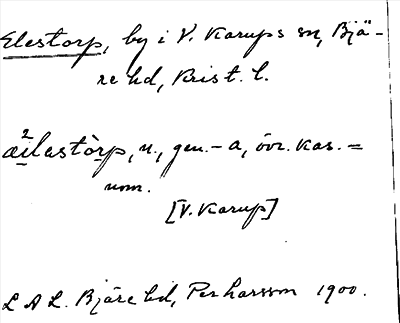 Elestorp, by i V. Karups sn, Bjä-
re hd, Krist. l.
2
æilastòrp, n., gen. – a, övr. kas. =
nom.
[V. Karup]
L A L. Bjäre hd, Per Larsson 1900.